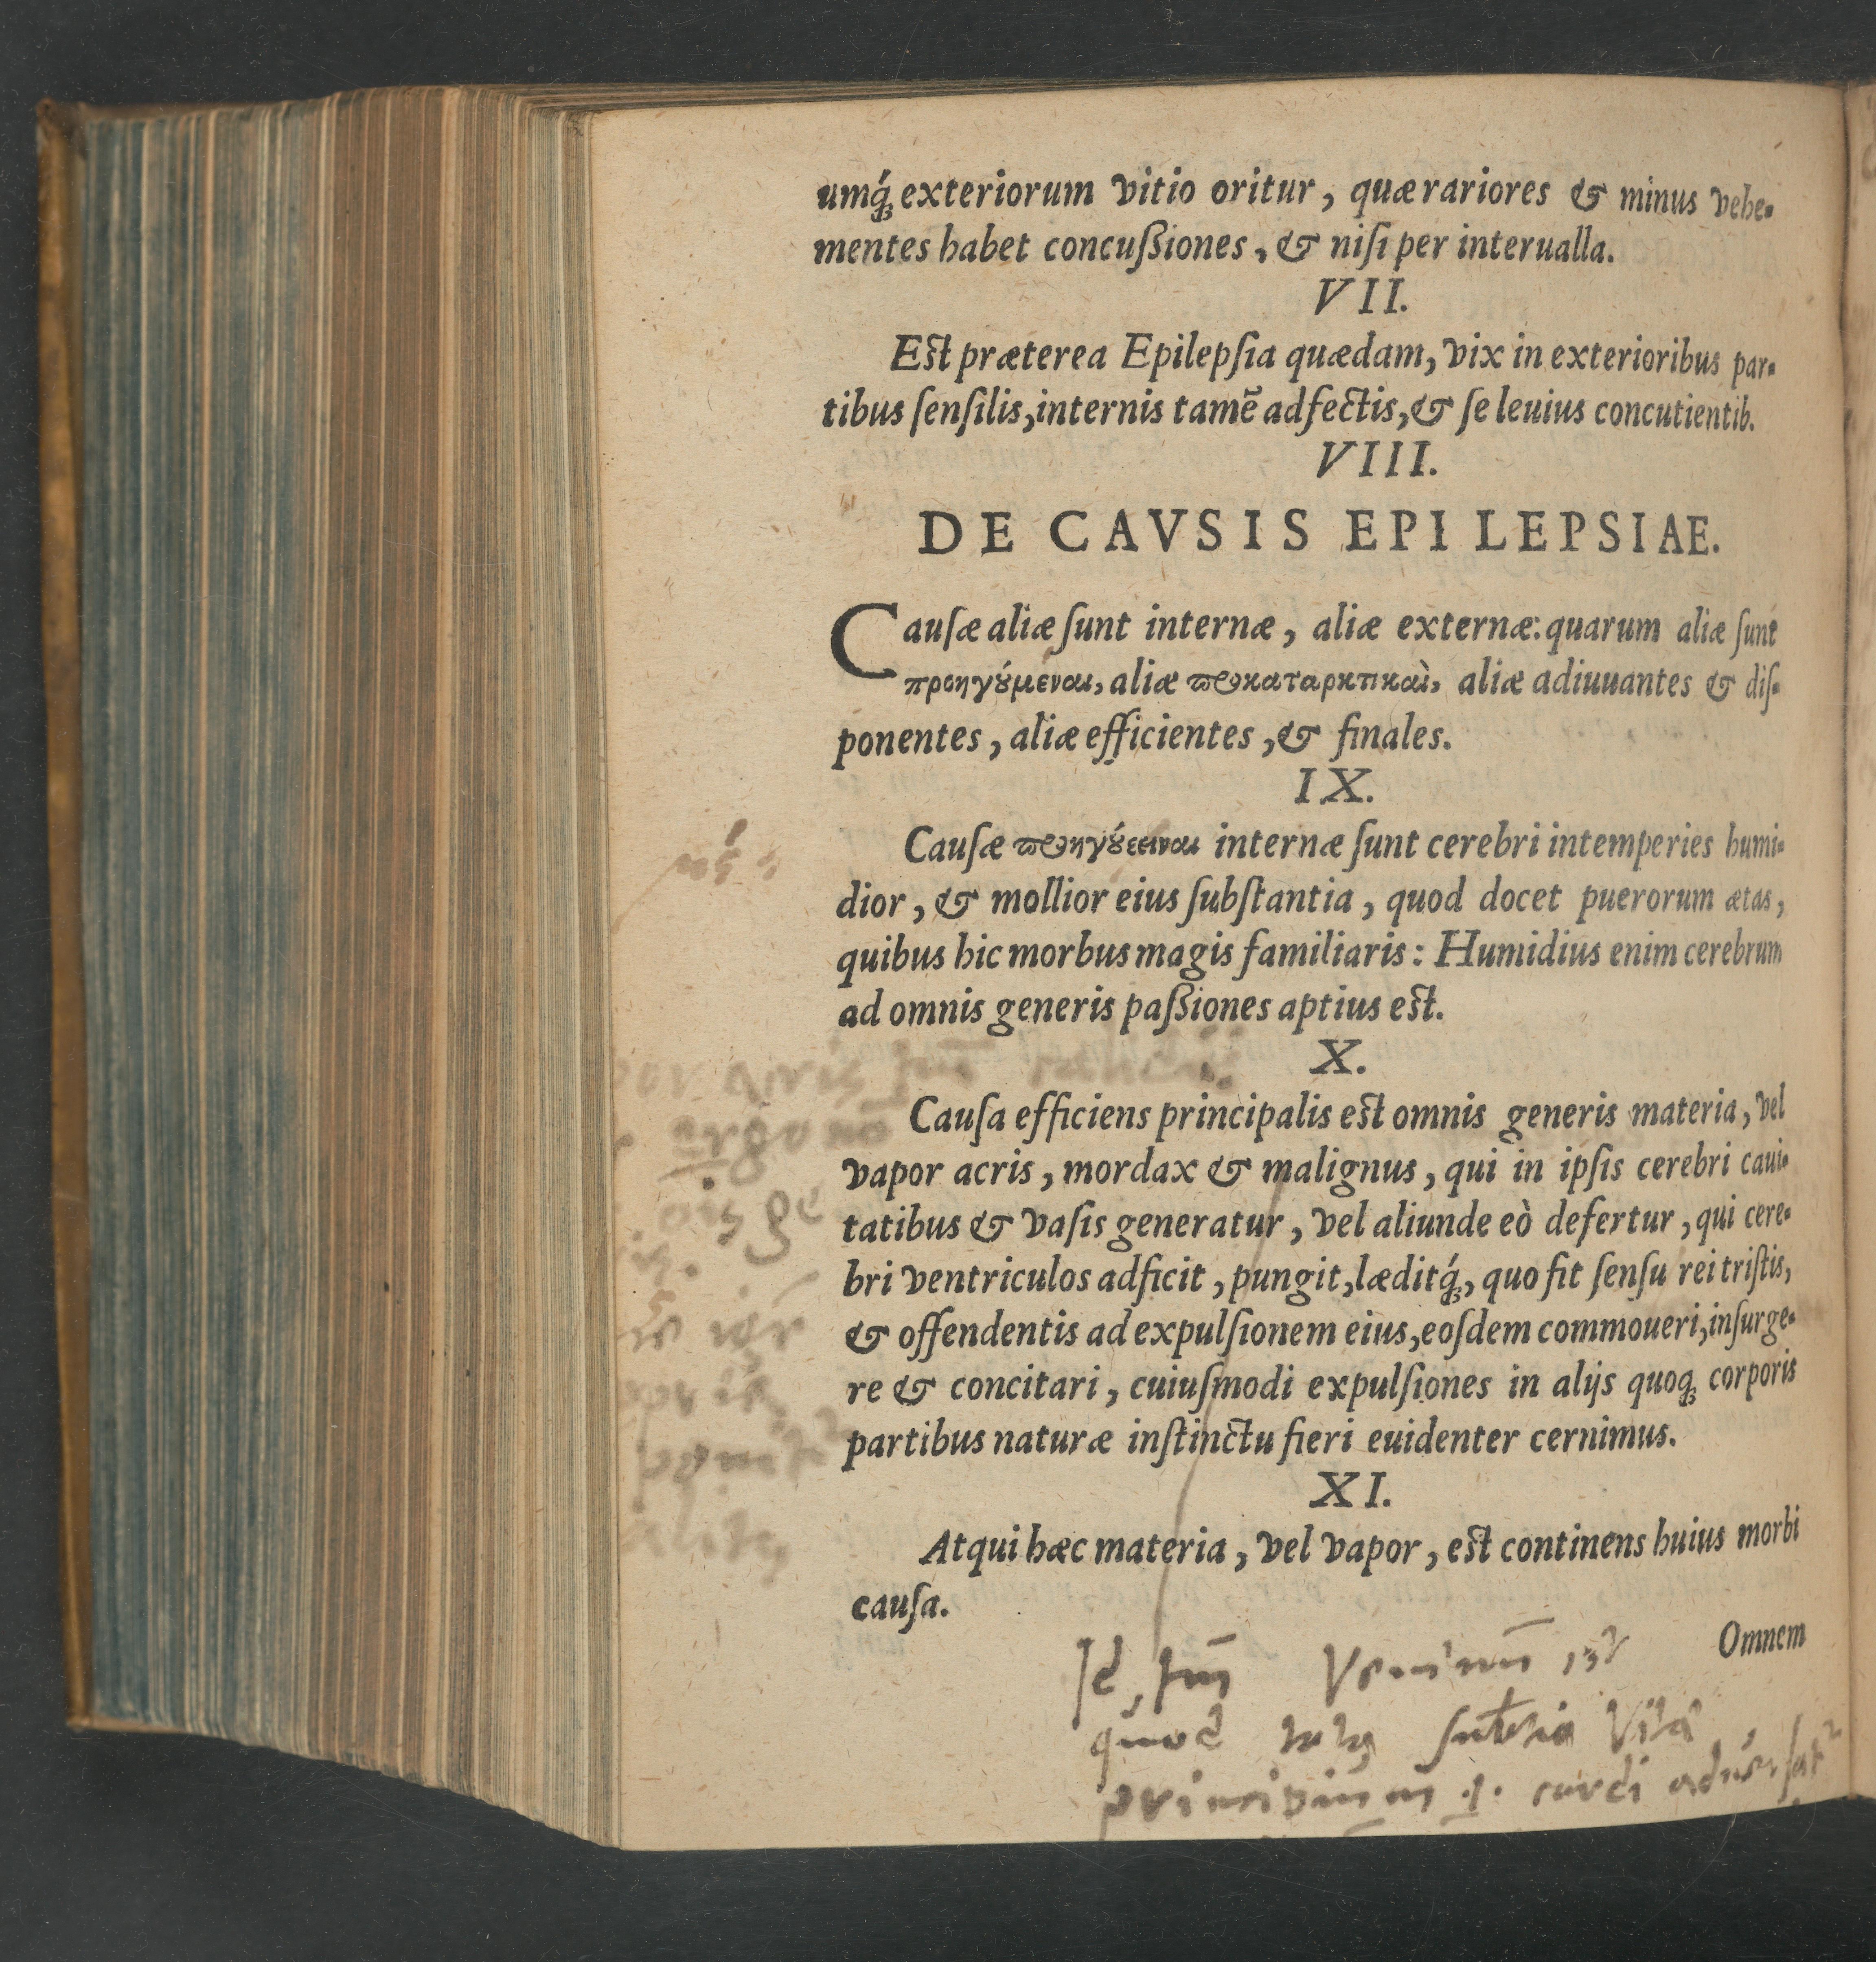 umq́ꝫ exteriorum vitio oritur, quæ rariores & minus vehe-
mentes habet concußiones, & niſi per interualla.
VII.
Eſt præterea Epilepſia quædam, vix in exterioribus par-
tibus ſenſilis, internis tamẽ adfectis, & ſe leuius concutientib.
VIII.
DE CAVSIS EPILEPSIAE.
Cauſæ aliæ ſunt internæ, aliæ externæ: quarum aliæ ſunt
προηγούμεναι, aliæ προκαταρκτικαὶ, aliæ adiuuantes & diſ-
ponentes, aliæ efficientes, & finales.
IX.
Cauſæ internæ ſunt cerebri intemperies humi-
dior, & mollior eius ſubſtantia, quod docet puerorum ætas,
quibus hic morbus magis familiaris: Humidius enim cerebrum
ad omnis generis paßiones aptius eſt.
X.
Cauſa efficiens principalis eſt omnis generis materia, vel
vapor acris, mordax & malignus, qui in ipſis cerebri caui-
tatibus & vaſis generatur, vel aliunde eò defertur, qui cere-
bri ventriculos adficit, pungit, læditq́ꝫ, quo fit ſenſu rei triſtis,
& offendentis ad expulſionem eius, eoſdem commoueri, inſurge-
re & concitari, cuiuſmodi expulſiones in alijs quoqꝫ corporis
partibus naturæ inſtinctu fieri euidenter cernimus.
XI.
Atqui hæc materia, vel vapor, eſt continens huius morbi
cauſa.
Omnem
quod
principium cordi